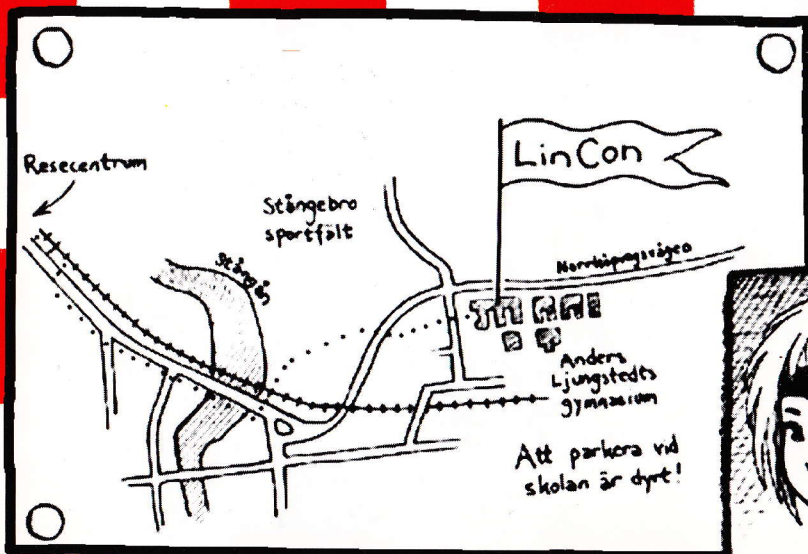 LinCon
Resecentrum
Stångebro
sportfält
Stångån
Norrköpingsvägen
Anders
Ljungstedts
gymnasium
Att parkera vid
skolan är dyrt!